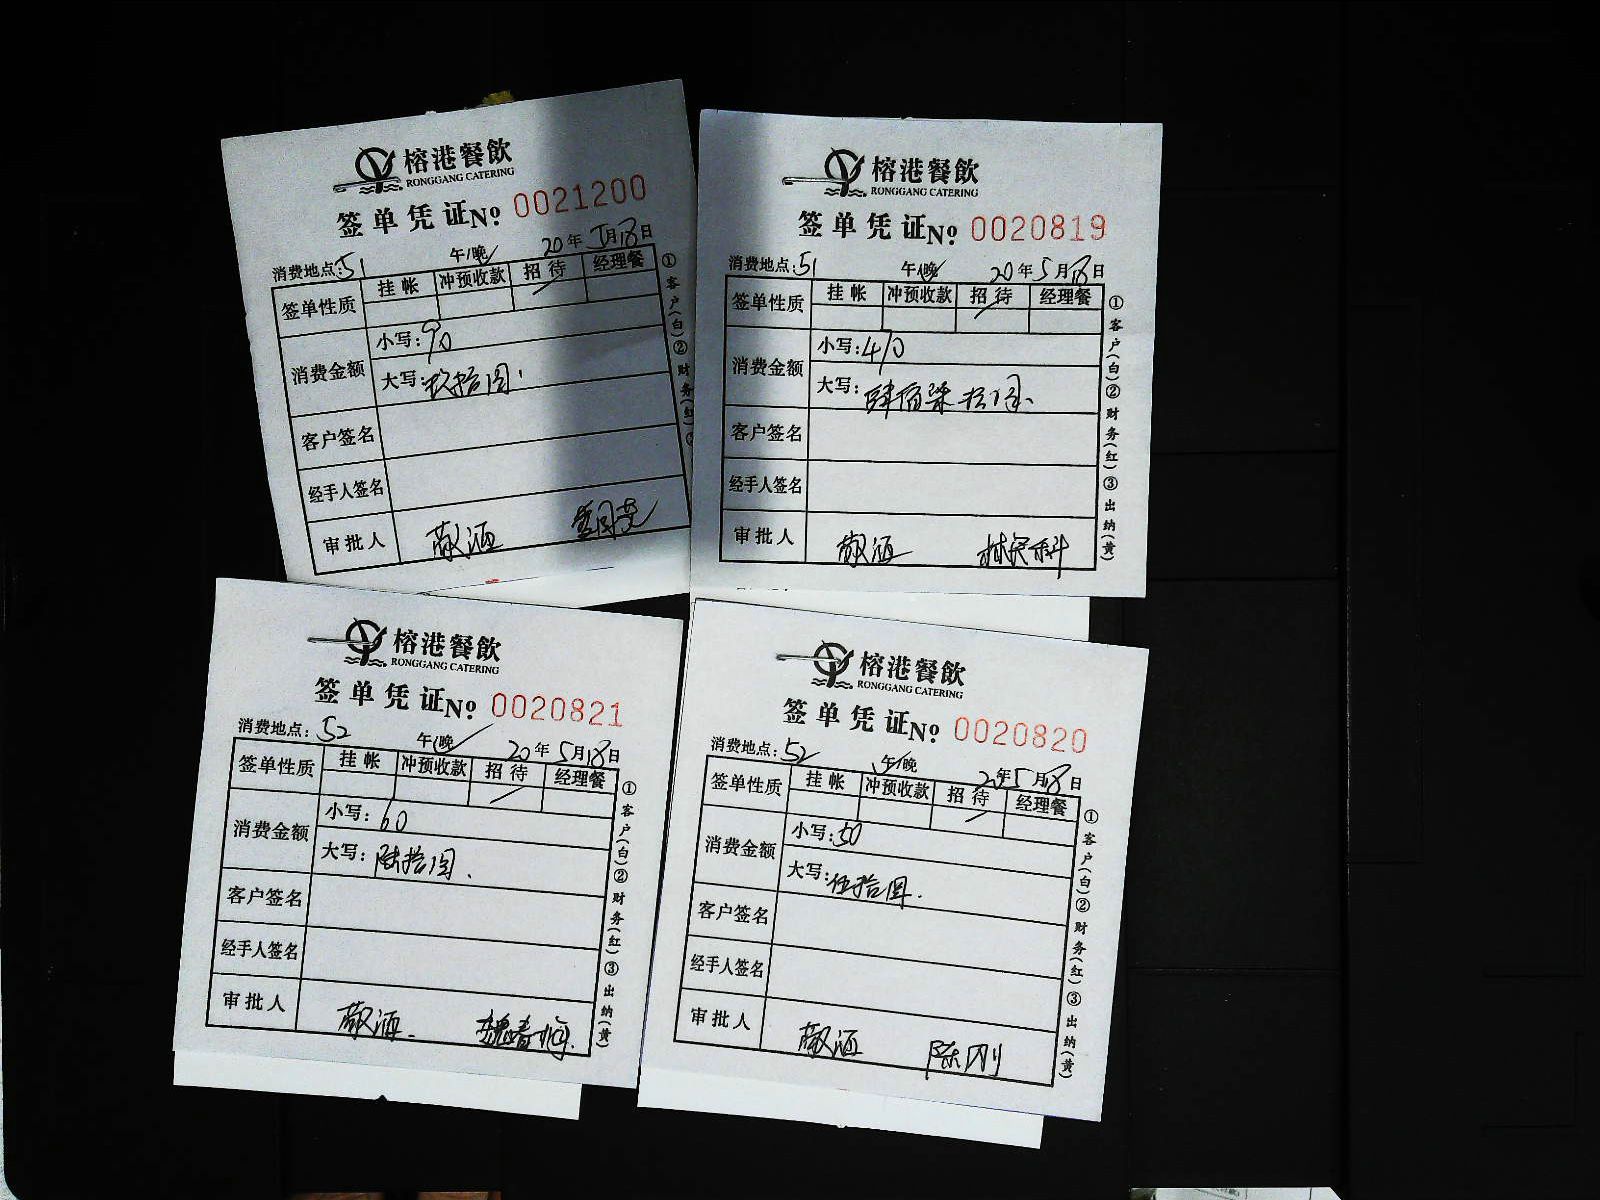 榕港餐飲
RONGGANG CATERING
签单凭证№ 0021200
消费地点:51 午/晚 20年5月18日
签单性质 挂帐 冲预收款 招待 经理餐
消费金额 小写:90
大写:玖拾圆.
客户签名
经手人签名
审批人
①客户(白)②财务(红)
榕港餐飲
RONGGANG CATERING
签单凭证№ 0020819
消费地点:51 午/晚 20年5月18日
签单性质 挂帐 冲预收款 招待 经理餐
消费金额 小写:470
大写:肆佰柒拾圆.
客户签名
经手人签名
审批人 林民科
①客户(白)②财务(红)③出纳(黄)
榕港餐飲
RONGGANG CATERING
签单凭证№ 0020821
消费地点:52 午/晚 20年5月18日
签单性质 挂帐 冲预收款 招待 经理餐
消费金额 小写:60
大写:陆拾圆.
客户签名
经手人签名
审批人 魏春梅.
①客户(白)②财务(红)③出纳(黄)
榕港餐飲
RONGGANG CATERING
签单凭证№ 0020820
消费地点:52 午/晚 20年5月18日
签单性质 挂帐 冲预收款 招待 经理餐
消费金额 小写:50
大写:伍拾圆.
客户签名
经手人签名
审批人 陈刚
①客户(白)②财务(红)③出纳(黄)